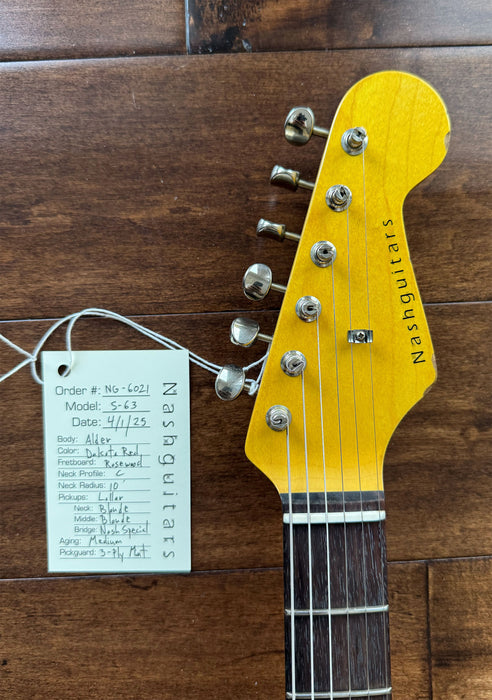 Nashguitars
Nashguitars
Order #: NG-6021
Model: S-63
Date: 4/1/25
Body: Alder
Color: Dakota Red
Fretboard: Rosewood
Neck Profile: C
Neck Radius: 10"
Pickups: Lollar
Neck: Blonde
Middle: Blonde
Bridge: Nash Special
Aging: Medium
Pickguard: 3-Ply Mint